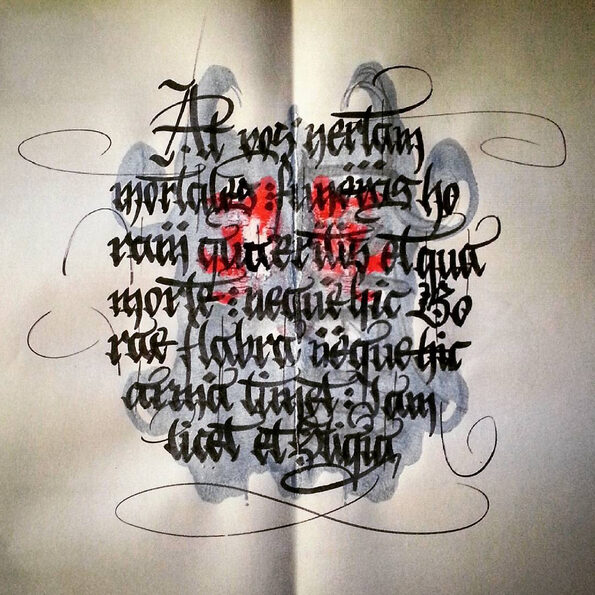 At vos incertam
mortales : funeris ho
ram quaeritis et qua
morte : neque hic Bo
rae flabra neque hic
arma timet : Iam
licet et Stigia